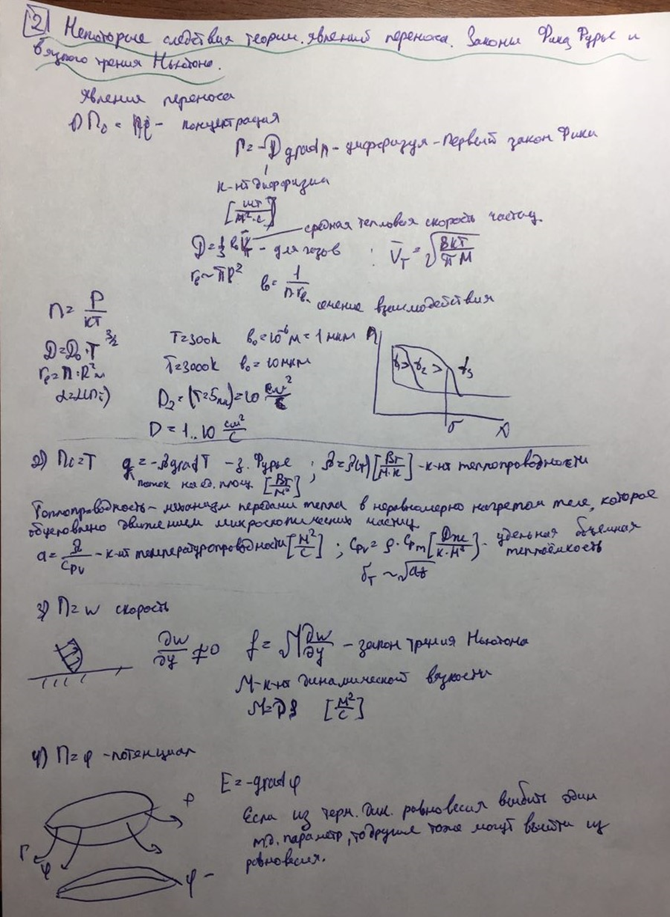 [2] Некоторые следствия теории явлений переноса. Законы Фика, Фурье и
вязкого трения Ньютона.
Явления переноса
1) Пс = n - концентрация
Г = -D grad n - диффузия - первый закон Фика
к-нт диффузии
[шт/м²·с]
средняя тепловая скорость частиц
D = 1/3 l₀ V̄т - для газов ; V̄т = √(8kT/πM)
rc ~ πR² l₀ = 1/(n·rc) сечение взаимодействия
n = P/kT
D = D₀·T^3/2 T=300k l₀=10⁻⁶м = 1 мкм
T=3000k l₀=10мкм
t₁ > t₂ > t₃
D = 1..10 см²/с
2) Пс = T q = -λ grad T - з. Фурье ; λ = λ(T) [Вт/м·к] - к-нт теплопроводности
поток на ед. площ. [Вт/м²]
Теплопроводность - механизм передачи тепла в неравномерно нагретом теле, которое
обусловлено движением микроскопических частиц
a = λ/Cpv - к-нт температуропроводности [м²/с] ; Cpv = ρ·Cpm [Дж/к·м³] - удельная объемная
теплоёмкость
3) П = w скорость
∂w/∂y ≠ 0 - закон трения Ньютона
М - к-нт динамической вязкости
[м²/с]
4) П = φ - потенциал
E = -grad φ
Если из терм. дин. равновесия выбить один
т.д. параметр, то другие тоже могут выйти из
равновесия.
Г φ
φ -